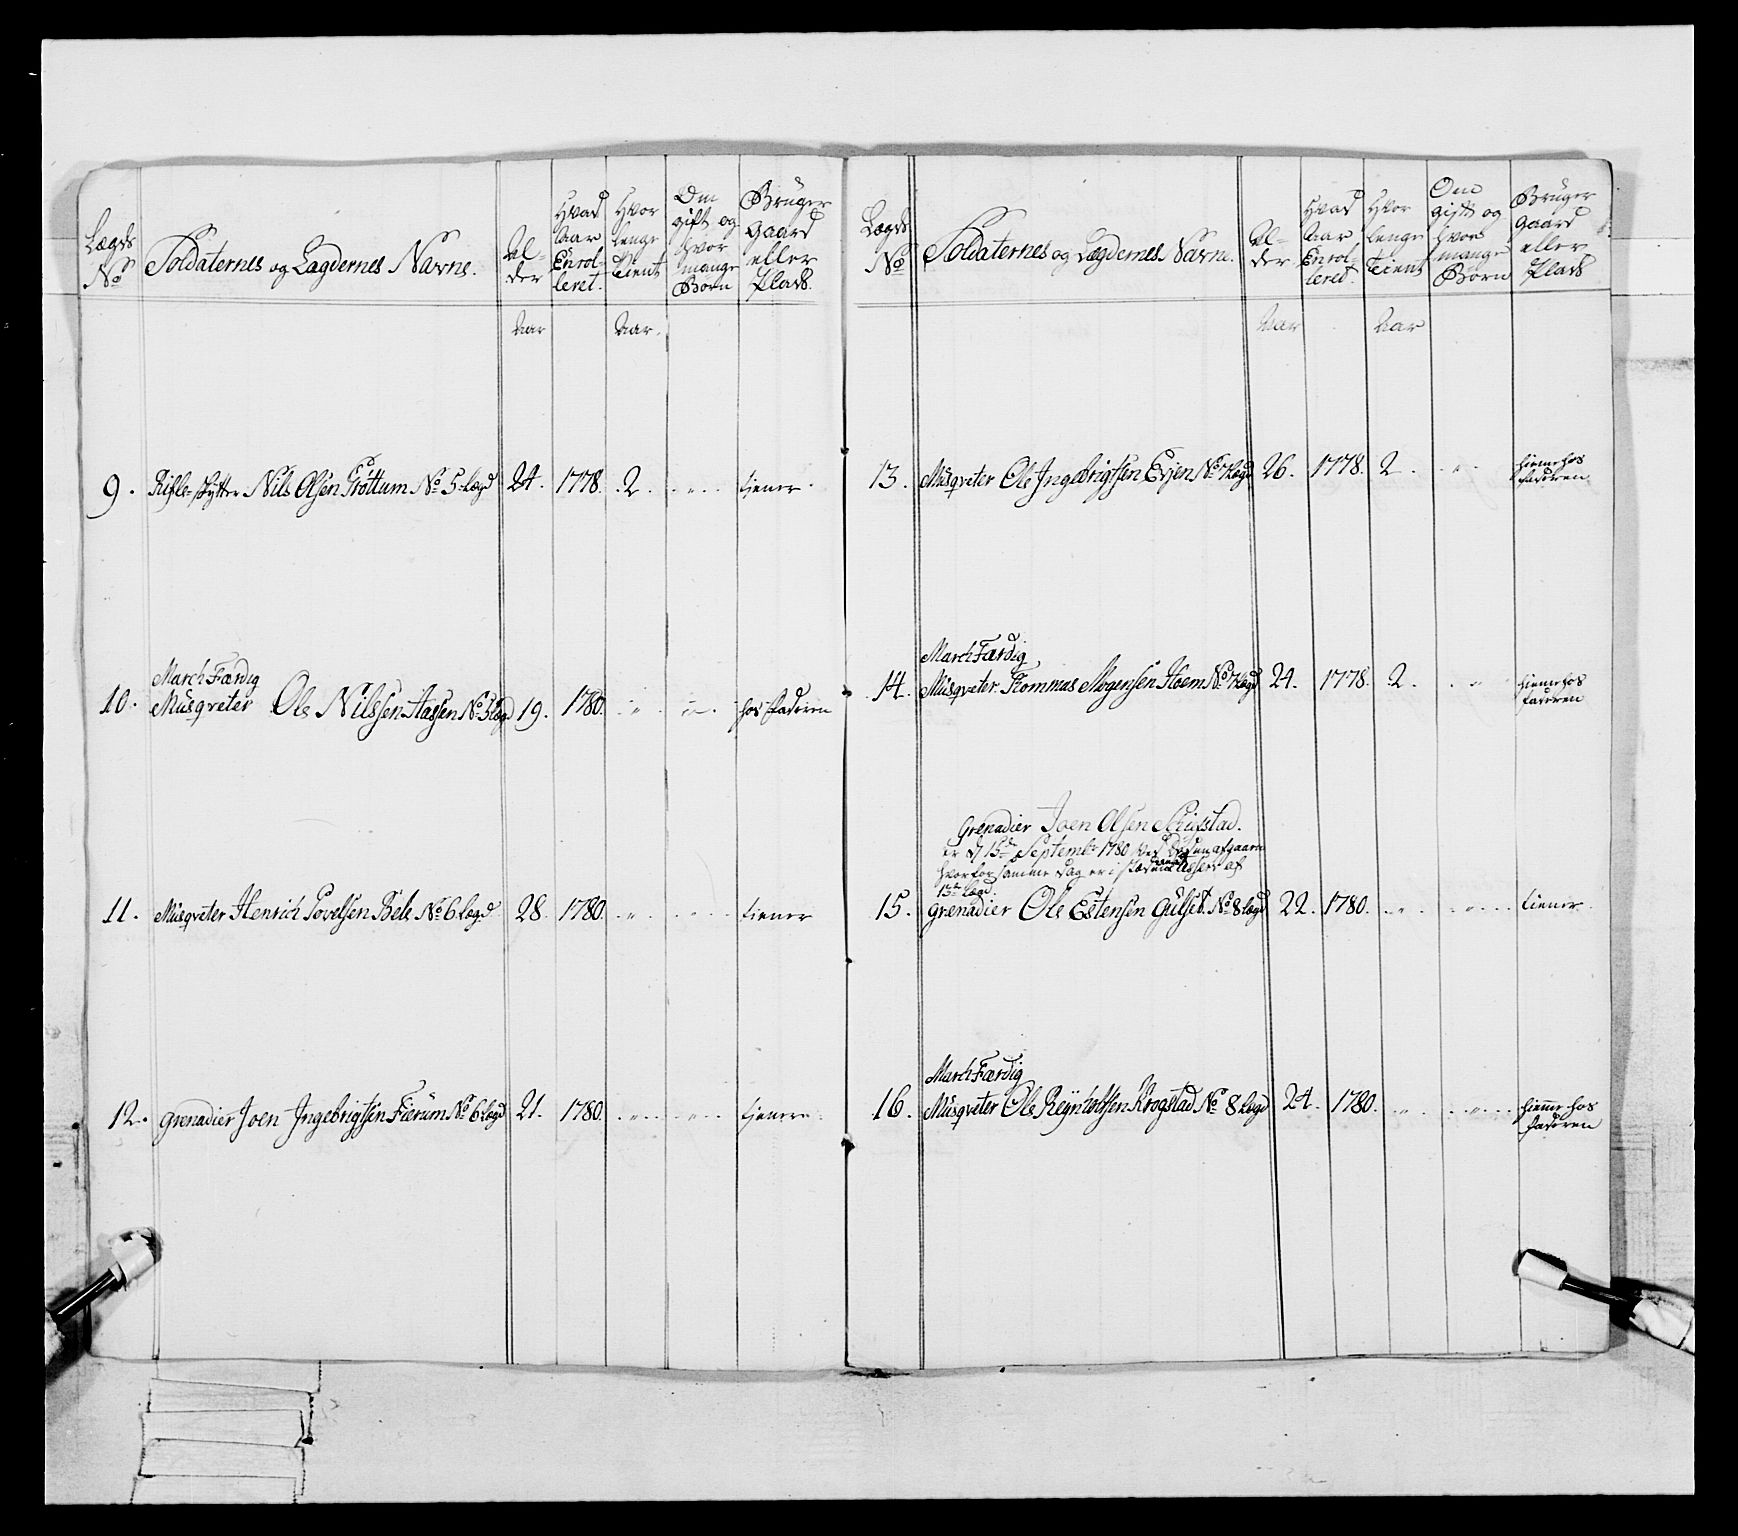 Lægds No
Soldaternes og Lægdernes Navne.
Al-
der
Hvad
Aar
Enrol-
leret.
Hvor
lenge
Tient
Om
gift og
hvor
mange
Børn
Bruger
Gaard
eller
Plads.
Aar
Aar.
9. Rifle-skytter Nils Olsen Trøttum No 5 Lægd 24. 1778. 2. " tjener.
March Færdig
10. Musqveter Ole Nilssen Aassen No 5 Lægd 19. 1780. " " hos Faderen
11. Musqveter Henrich Povelsen Bele No 6 Lægd 28. 1780. " " tiener
12. Grenadier Joen Ingebrigtsen Fierum No 6 Lægd 21. 1780. " " tjener
Lægds
No
Soldaternes og Lægdernes Navne.
Al-
der.
Hvad
Aar
Enrol-
leret.
Hvor
lenge
Tient
Om
gift og
hvor
mange
Børn
Bruger
Gaard
eller
Plads
Aar
Aar
13. Musqveter Ole Ingebrigtsen Evjen No 7 Lægd 26. 1778. 2. " hiemme hos
Faderen
March Færdig
14. Musqveter Tommas Mogensen Hoem No 7 Lægd 24. 1778. 2. " hiemme hos
Faderen
Grenadier Joen Olsen
er d 15de Septembr 1780 ved Døden afgaaen
hvorfor samme Dag er i Stæden af
13de Lægd.
15. Grenadier Ole Estensen Gulset No 8 Lægd 22. 1780. " " tiener
March Færdig
16. Musqveter Ole Reynholtsen Krogstad No 8 Lægd 24. 1780. " " hiemme hos
Faderen